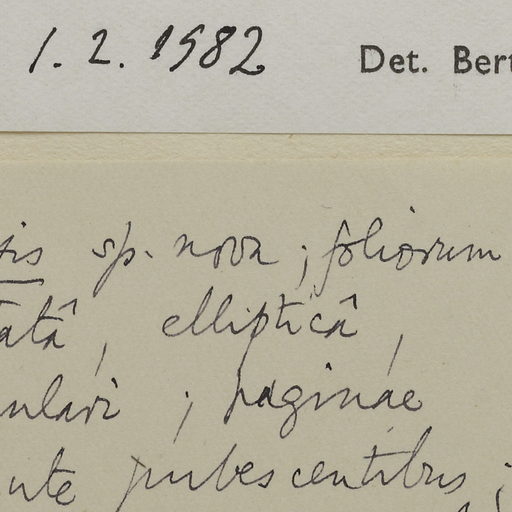 1. 2. 1982 Det. Bert
tis sp. nova ; foliorum
tatâ, ellipticâ,
nulari ; paginae
nte pubescentibus ;